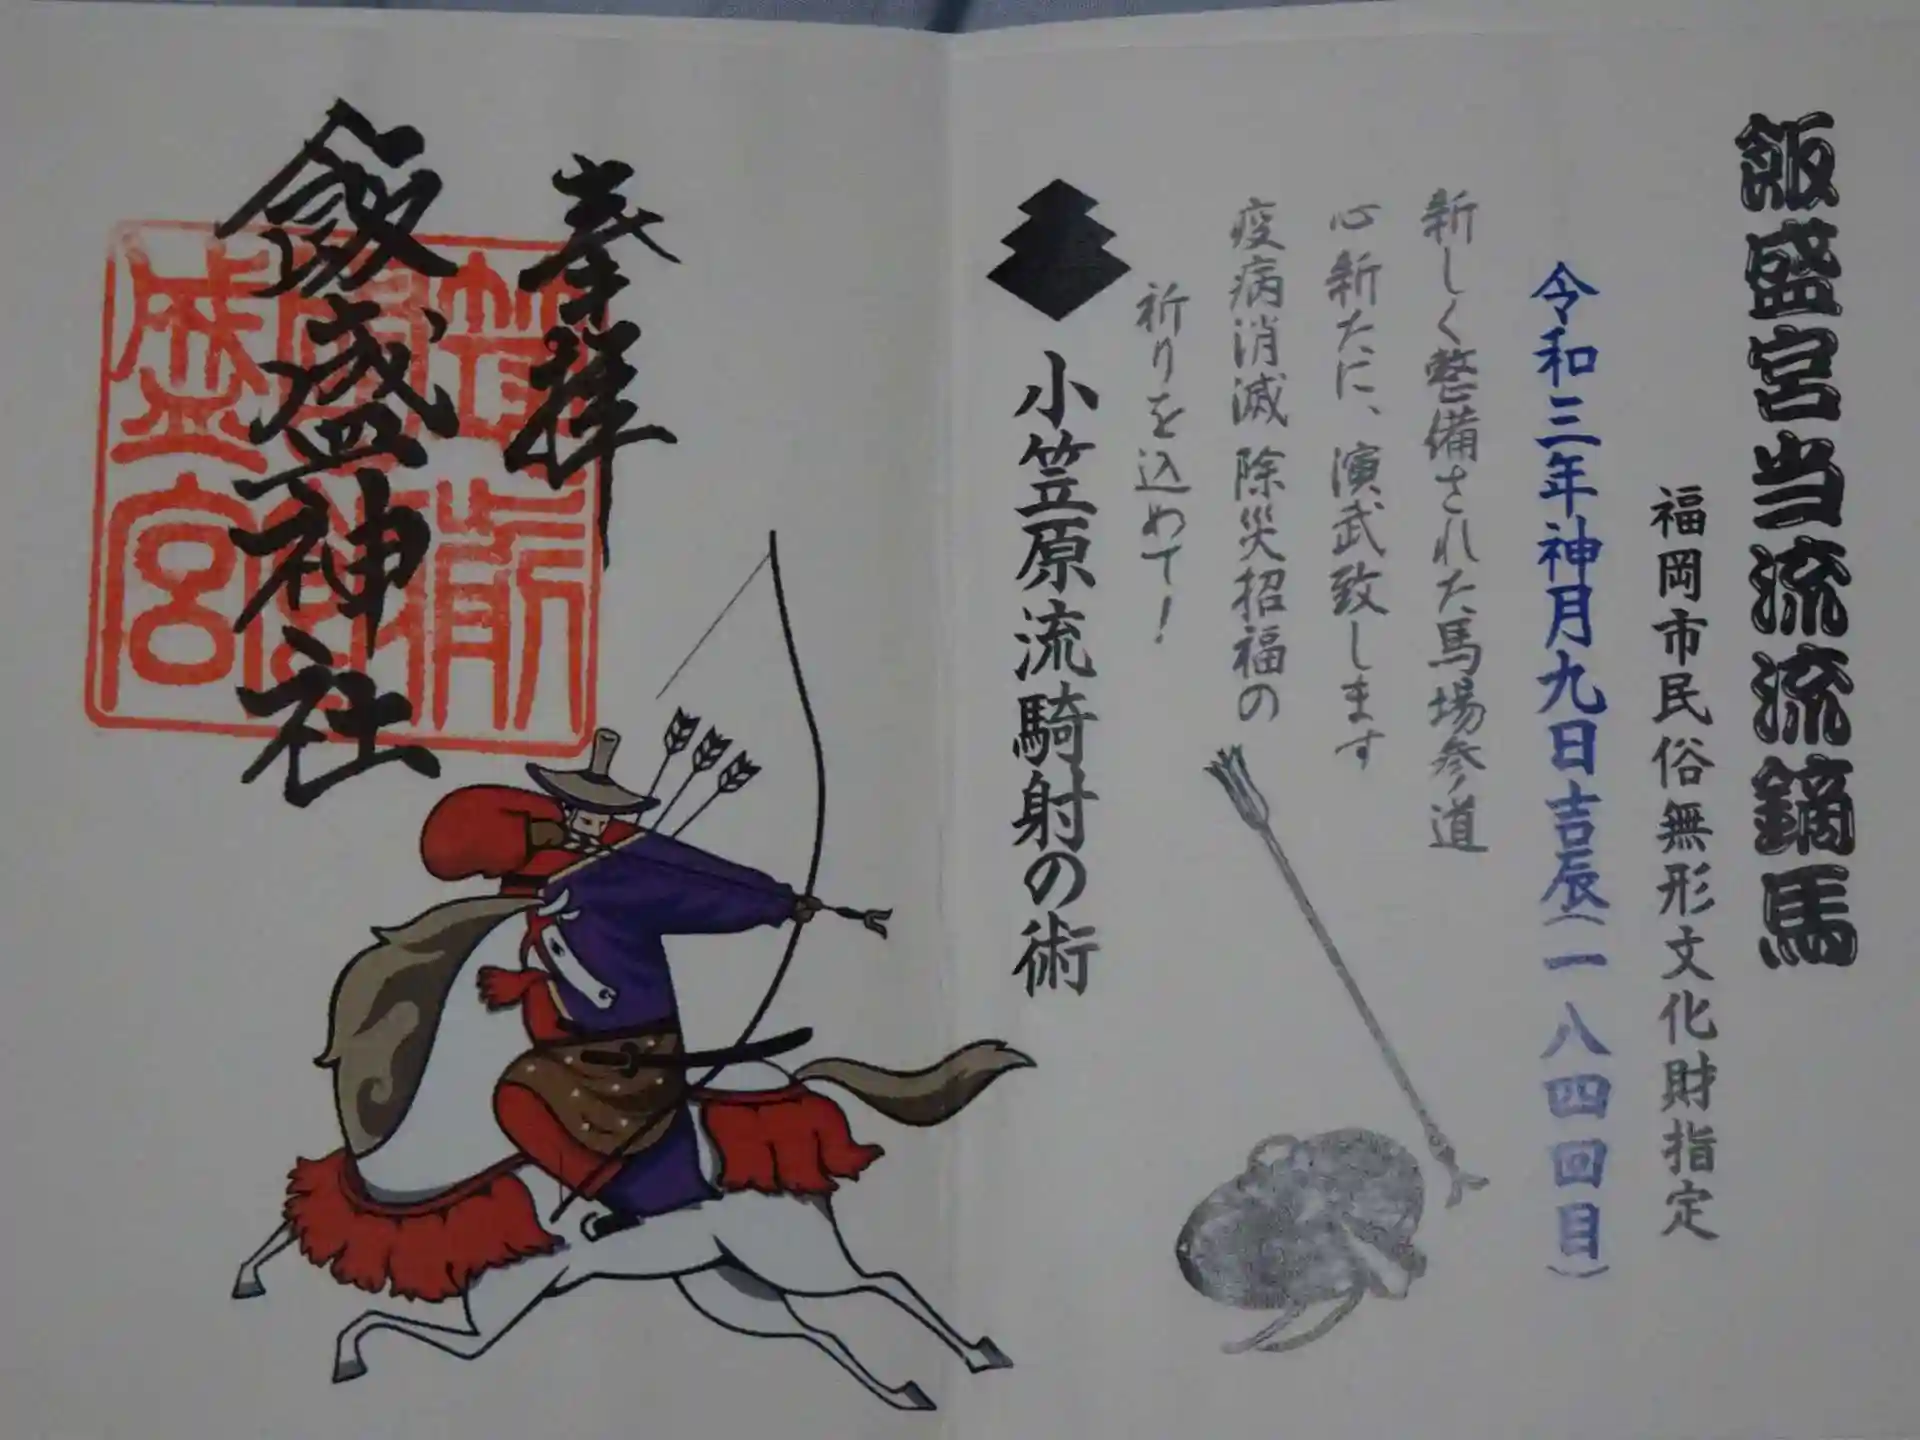 飯盛宮当流流鏑馬
福岡市民俗無形文化財指定
令和三年神月九日吉辰(一八四回目)
新しく整備された馬場参道
心新たに、演武致します
疫病消滅 除災招福の
祈りを込めて!
小笠原流騎射の術
奉拝
飯盛神社
筑前
盛宮